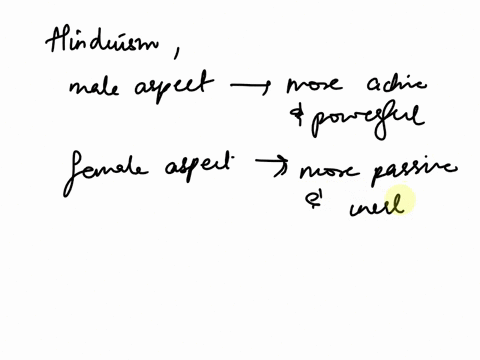 Hinduism,
male aspect → more active
& powerful
female aspect → more passive
& inert